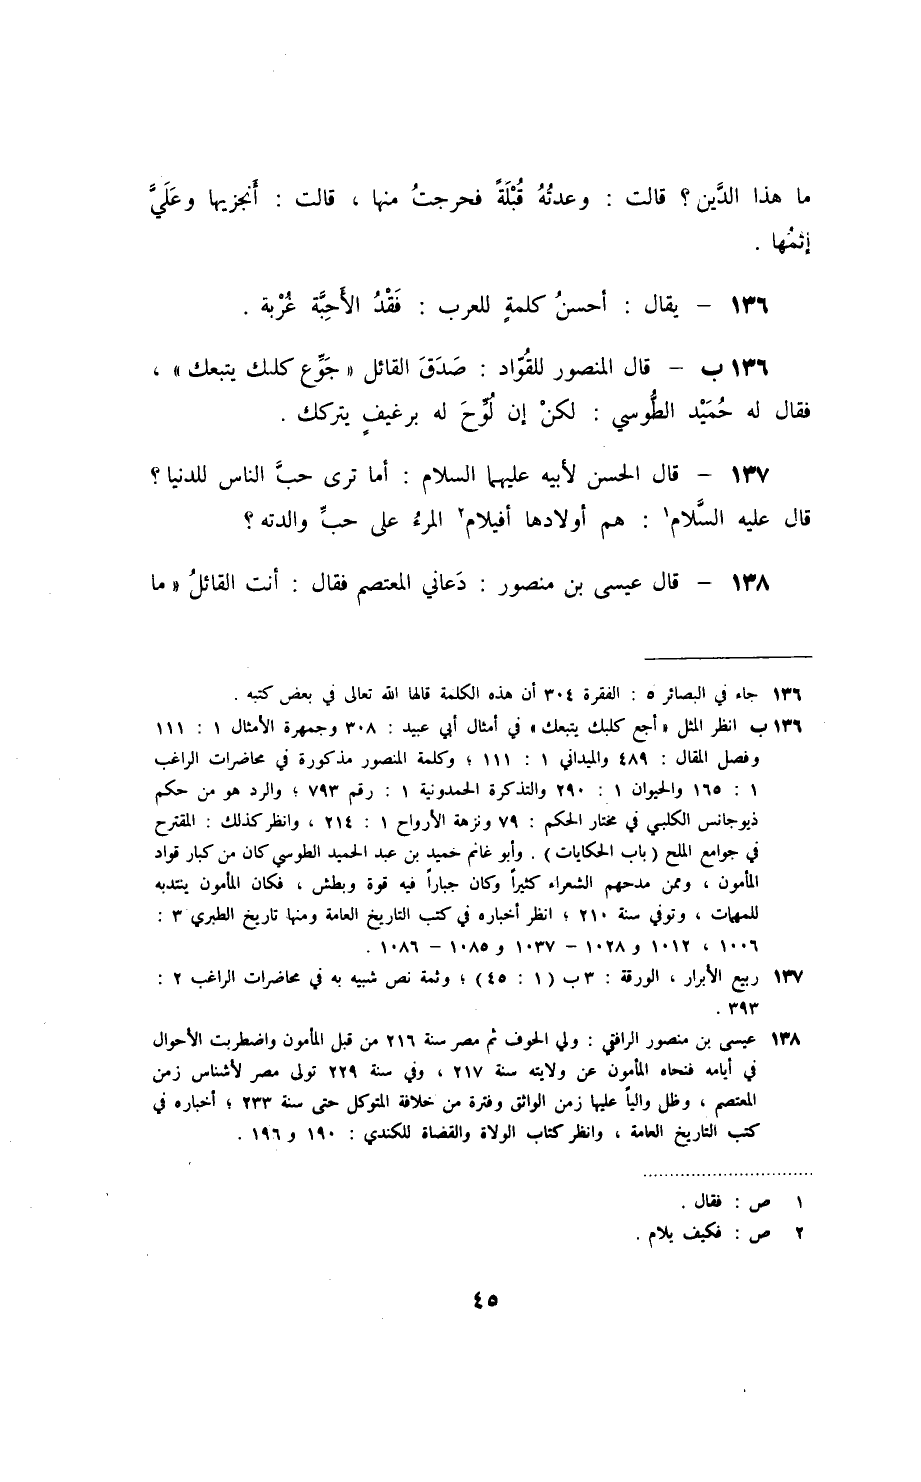 ما هذا الدَّين ؟ قالت : وعدتُهُ قُبْلَةً فحرجتُ منها ، قالت : أَنجزيها وعَلَيَّ
إثمُها .
١٣٦ – يقال : أحسنُ كلمةٍ للعرب : فَقْدُ الأَحِبَّة غُرْبة .
١٣٦ب – قال المنصور للقُوّاد : صَدَقَ القائل « جَوِّع كلبك يتبعك » ،
فقال له حُمَيْد الطُّوسي : لكنْ إن لُوِّحَ له برغيفٍ يتركك .
١٣٧ – قال الحسن لأبيه عليهما السلام : أما ترى حبَّ الناس للدنيا ؟
قال عليه السَّلام١ : هم أولادها أفيلام٢ المرءُ على حبِّ والدته ؟
١٣٨ – قال عيسى بن منصور : دَعاني المعتصم فقال : أنت القائلُ « ما
١٣٦ جاء في البصائر ٥ : الفقرة ٣٠٤ أن هذه الكلمة قالها الله تعالى في بعض كتبه .
١٣٦ب انظر المثل « أجع كلبك يتبعك » في أمثال أبي عبيد : ٣٠٨ وجمهرة الأمثال ١ : ١١١
وفصل المقال : ٤٨٩ والميداني ١ : ١١١ ؛ وكلمة المنصور مذكورة في محاضرات الراغب
١ : ١٦٥ والحيوان ١ : ٢٩٠ والتذكرة الحمدونية ١ : رقم ٧٩٣ ؛ والرد هو من حكم
ذيوجانس الكلبي في مختار الحكم : ٧٩ ونزهة الأرواح ١ : ٢١٤ ، وانظر كذلك : المقترح
في جوامع الملح ( باب الحكايات ) . وأبو غانم حميد بن عبد الحميد الطوسي كان من كبار قواد
المأمون ، وممن مدحهم الشعراء كثيراً وكان جباراً فيه قوة وبطش ، فكان المأمون ينتدبه
للمهات ، وتوفي سنة ٢١٠ ؛ انظر أخباره في كتب التاريخ العامة ومنها تاريخ الطبري ٣ :
١٠٠٦ ، ١٠١٢ و ١٠٢٨ – ١٠٣٧ و ١٠٨٥ – ١٠٨٦ .
١٣٧ ربيع الأبرار ، الورقة : ٣ب ( ١ : ٤٥ ) ؛ وثمة نص شبيه به في محاضرات الراغب ٢ :
٣٩٣ .
١٣٨ عيسى بن منصور الرافقي : ولي الحوف ثم مصر سنة ٢١٦ من قبل المأمون واضطربت الأحوال
في أيامه فنحاه المأمون عن ولايته سنة ٢١٧ ، وفي سنة ٢٢٩ تولى مصر لأشناس زمن
المعتصم ، وظل والياً عليها زمن الواثق وفترة من خلافة المتوكل حتى سنة ٢٣٣ ؛ أخباره في
كتب التاريخ العامة ، وانظر كتاب الولاة والقضاة للكندي : ١٩٠ و ١٩٦ .
١ ص : فقال .
٢ ص : فكيف يلام .
٤٥